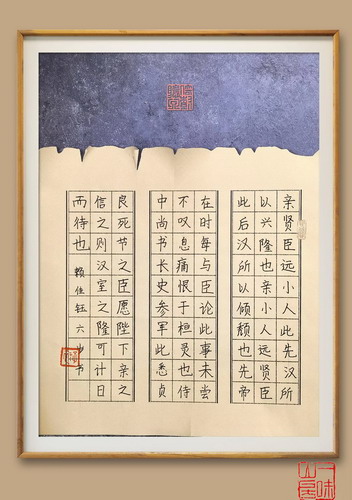 亲贤臣远小人此先汉所
以兴隆也亲小人远贤臣
此后汉所以倾颓也先帝
在时每与臣论此事未尝
不叹息痛恨于桓灵也侍
中尚书长史参军此悉贞
良死节之臣愿陛下亲之
信之则汉室之隆可计日
而待也 赖佳钰 六 书
一味山